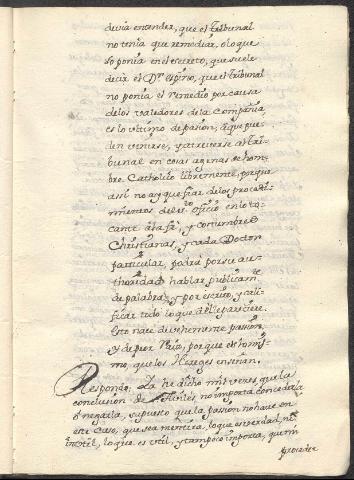 devia entender, que el Tribunal
no tenia que remediar, o lo que
so ponia en el secreto, que suele
decir el Dr. espino, que el Tribunal
no ponia el remedio por causa
de los valedores de la Compañia,
es lo ultimo de pasion, a que pue-
den venirse, y atreverse al tri-
bunal en cosas agenas de hom-
bre Catholico libremente, porque
assi no ay que fiar de los procedi-
mientos del Sto. oficio en lo to-
cante a la fê, y costumbres
Christianas, y cada Doctor
particular, podrà por su au-
thoridad hablar publicamte.
de palabra, y por escrito, y cali-
ficar todo lo que a el le pareciere.
Esto nace de vehemente pasion,
y de peor
mo, que los Hereges enseñan.
Respondo. Ya he dicho mil veces, que la
conclusion de Aviles, no importa concederla
o negarla, supuesto que la pasion no have en
este caso, que sea mentira, lo que es verdad, ni
inutil, lo que es util, y tampoco importa, que mi
proceder